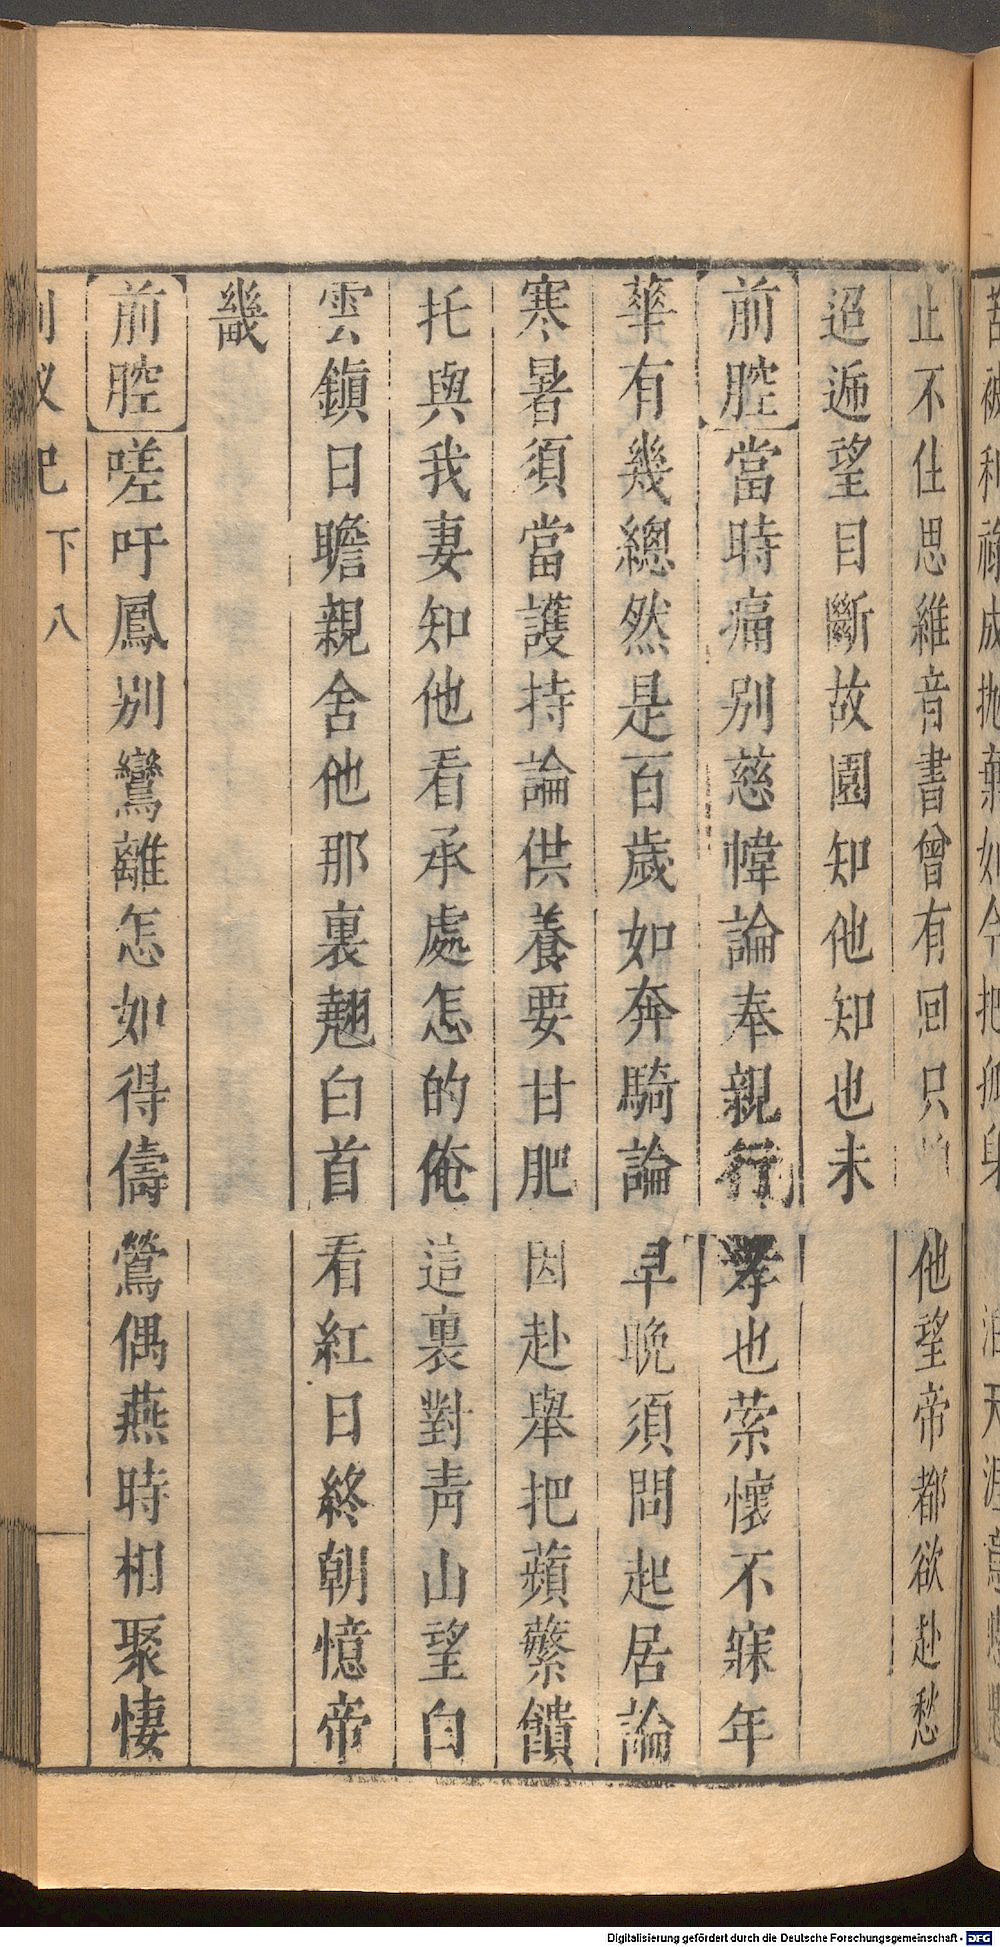 止不住思維音書曾有回只他望帝都欲赴愁
迢遞望目斷故園知他知也未
前腔當時痛别慈幃論奉親行孝也縈懷不寐年
華有幾總然是百歲如奔騎論早晚須問起居論
寒暑須當護持論供養要甘肥因赴舉把蘋蘩饋
托與我妻知他看承處怎的俺這裏對青山望白
雲鎮日瞻親舍他那裏翹白首看紅日終朝憶帝
畿
前腔嗟吁鳳别鸞離怎如得儔鶯偶燕時相聚悽
下八
Digitalisierung gefördert durch die Deutsche Forschungsgemeinschaft - DFG